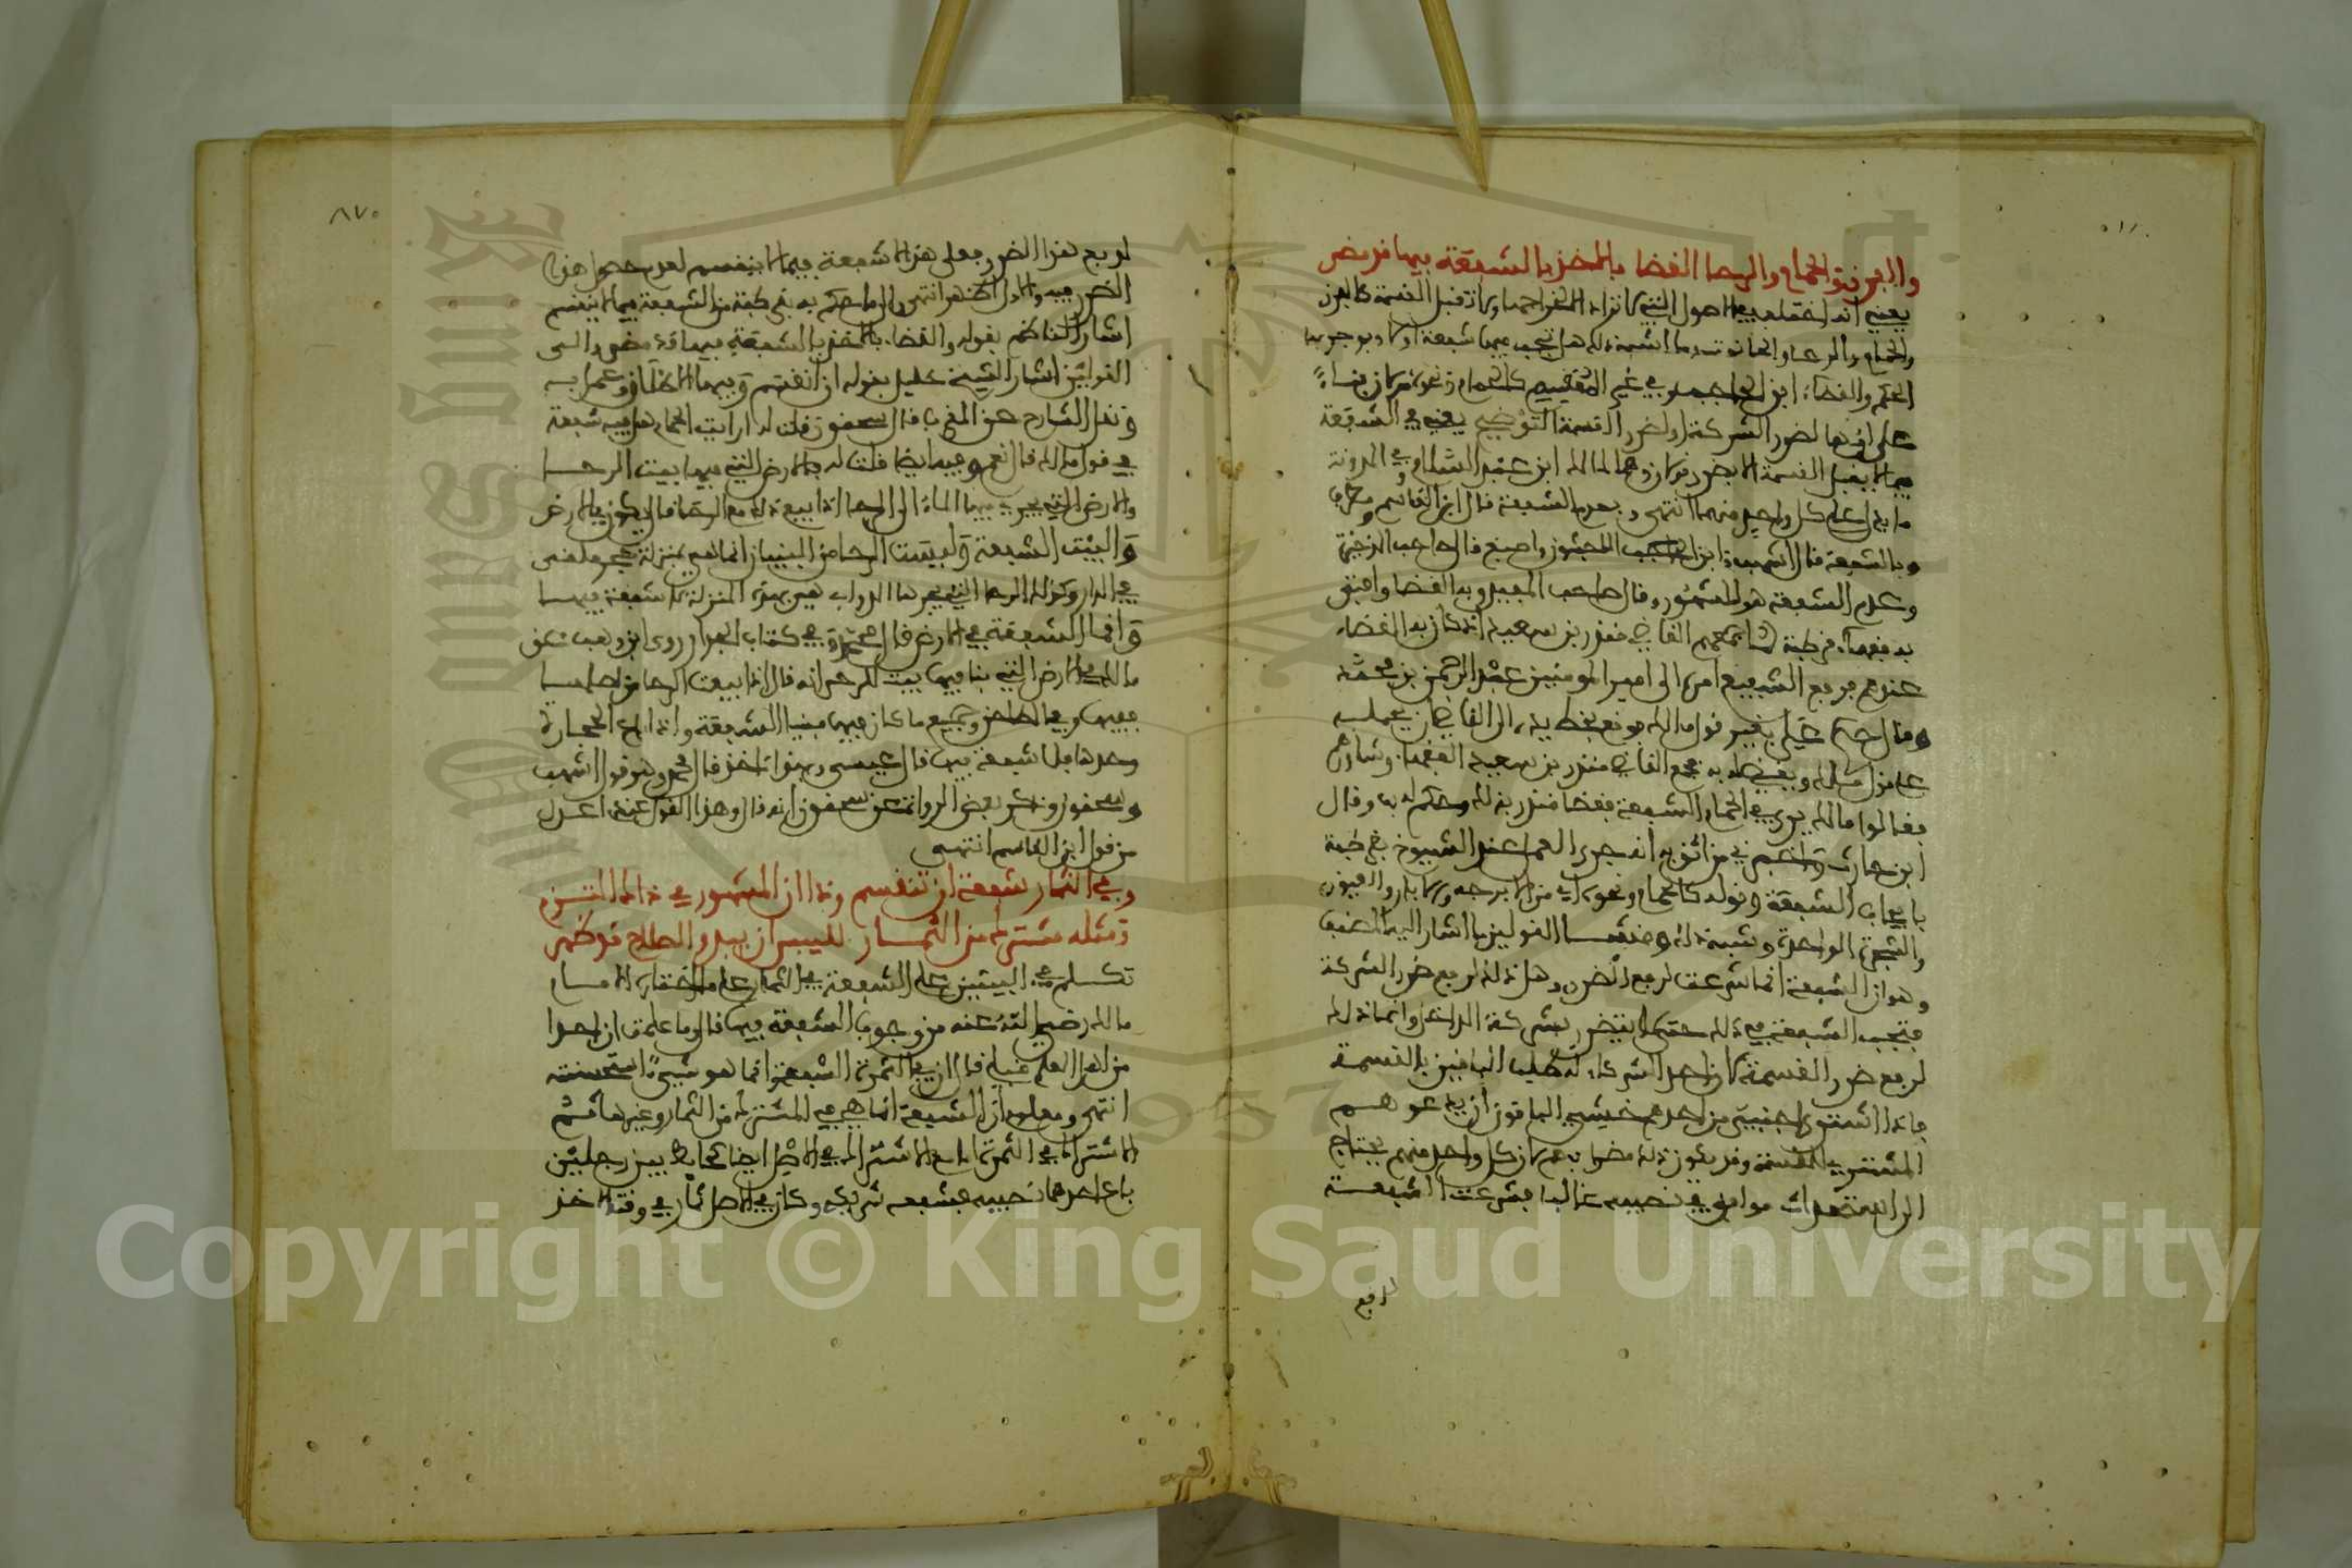 والفرن والحمام والرحا القضا بالاخذ بالشفعة فيما قد مضى
يعني انه اختلف في الاصول التي لا تراد للقراح ولا تقبل القسمة كالفرن
والحمام والرحا والحانوت وما اشبه ذلك هل تجب فيها شفعة ام لا وبوجوبها
الحكم والقضاء ابن الحاجب وفي غير المنقسم كالحمام ونحوه قولان بناء
على انها لضرر الشركة او لضرر القسمة التوضيح يعني في الشفعة
فيما لا يقبل القسمة الا بضرر قولان وهما لمالك ابن عبد السلام وفي المدونة
ما يدل على كل واحد منهما انتهى وبعدم الشفعة قال ابن القاسم ومطرف
وبالشفعة قال اشهب وابن الماجشون واصبغ قال صاحب الوثيقة
وعدم الشفعة هو المشهور وقال صاحب المفيد وبه القضا وافتى
به فقهاء قرطبة لما جمعهم القاضي منذر بن سعيد انه كان به القضاء
عندهم فرفع الشفيع امره الى امير المومنين عبد الرحمن بن محمد
وقال حكم علي بغير قول مالك فوقع بخط يده الى القاضي ان يحمله
على قول مالك ويقضي له به فجمع القاضي منذر بن سعيد الفقهاء وشاورهم
فقالوا مالك يرى في الحمام الشفعة فقضا منذر بذلك وحكم له بها وقال
ابن حارث واخبرني من اثق به انه جرى العمل عند الشيوخ بقرطبة
بايجاب الشفعة وقوله كالحمام ونحوه اي من الابرجة والابار والعيون
والشجرة الواحدة وشبه ذلك ومنشا القولين ما اشار اليه المصنف
وهو ان الشفعة انما شرعت لرفع الضرر وهل ذلك لرفع ضرر الشركة
فتجب الشفعة في ذلك حتى لا يتضرر بشركة الداخل وانما ذلك
لرفع ضرر القسمة لان احد الشركاء له طلب الباقين بالقسمة
فاذا اشترى اجنبي من احدهم خشي الباقون ان يدعوهم
المشتري للقسمة وقد يكون ذلك مضرا بهم لان كل واحد منهم يحتاج
الى استحداث مرافق في نصيبه غالبا فشرعت الشفعة
لرفع
٨٧٠
لرفع هذا الضرر فعلى هذا لا شفعة فيما لا ينقسم لعدم حصول هذا
الضرر فيه والاول اظهر انتهى والى ما حكم به في قرطبة من الشفعة فيما لا ينقسم
اشار الناظم بقوله والقضاء بالاخذ بالشفعة فيما قد مضى والى
القولين اشار الشيخ خليل بقوله ان انقسم وفيها الاطلاق وعمل به
ونقل الشارح عن المنتخب قال سحنون قلت له ارايت الحمام هل فيه شفعة
في قول مالك قال نعم وفيه ايضا قلت له والارض التي فيها بيت الرحا
والارض التي يجري فيها الماء الى الرحا اذا بيع ذلك مع الرحا قال يكون في الارض
والبيت الشفعة وليست الرحا من البنيان انما هي بمنزلة حجر ملقى
في الدار وكذلك الرحا التي تجرها الدواب هي بهذه المنزلة لا شفعة فيها
وانما الشفعة في الارض قال محمد وفي كتاب الجدار روى ابن وهب عن
مالك في الارض التي بنا فيها بيت للرحى انه قال اذا بيعت الرحا من اصلها
ففيها وفي الطاحن وجميع ما كان فيها مبنيا الشفعة واذا باع الحجارة
وحدها فلا شفعة فيها قال عيسى وبهذا ناخذ قال محمد وهو قول اشهب
وسحنون وذكر بعض الرواة عن سحنون انه قال وهذا القول عندي اعدل
من قول ابن القاسم انتهى
وفي الثمار شفعة ان تنقسم وذا ان المشهور في ذاك التزم
ومثله مشترك من الثمار لليبس ان بدو الصلاح قد ظهر
تكلم في البيتين على الشفعة في الثمار على ما اختاره الامام
مالك رضي الله عنه من وجوب الشفعة فيها قال وما علمت ان احدا
من اهل العلم قبلي قال ان في الثمرة الشفعة وانما هو شيء استحسنته
انتهى ومعلوم ان الشفعة انما هي في المشترك من الثمار وغيرها ثم
الاشتراك في الثمرة اما مع الاشتراك في الاصل ايضا كحائط بين رجلين
باع احدهما نصيبه فشفعه شريكه وكان في الاصل ثمار في وقت الاخذ